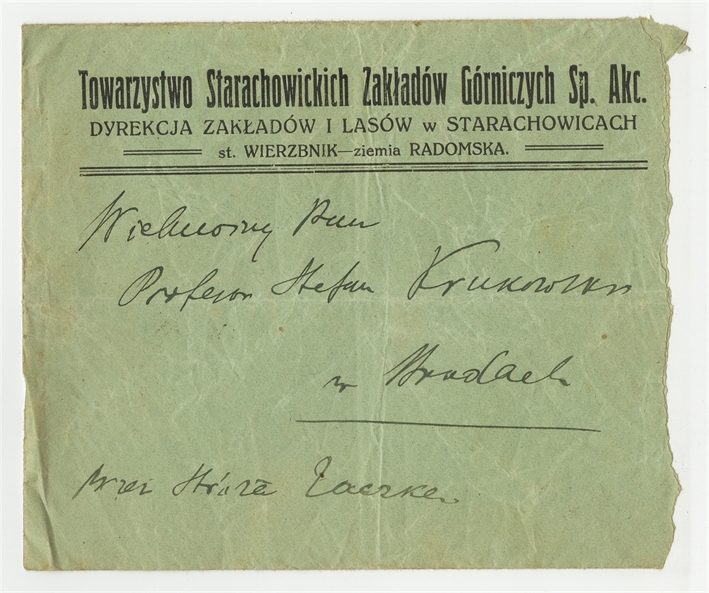 Towarzystwo Starachowickich Zakładów Górniczych Sp. Akc.
DYREKCJA ZAKŁADÓW I LASÓW w STARACHOWICACH
st. WIERZBNIK—ziemia RADOMSKA.
Wielmożny Pan
Profesor Stefan Krukowski
w Brodach
przez stróża